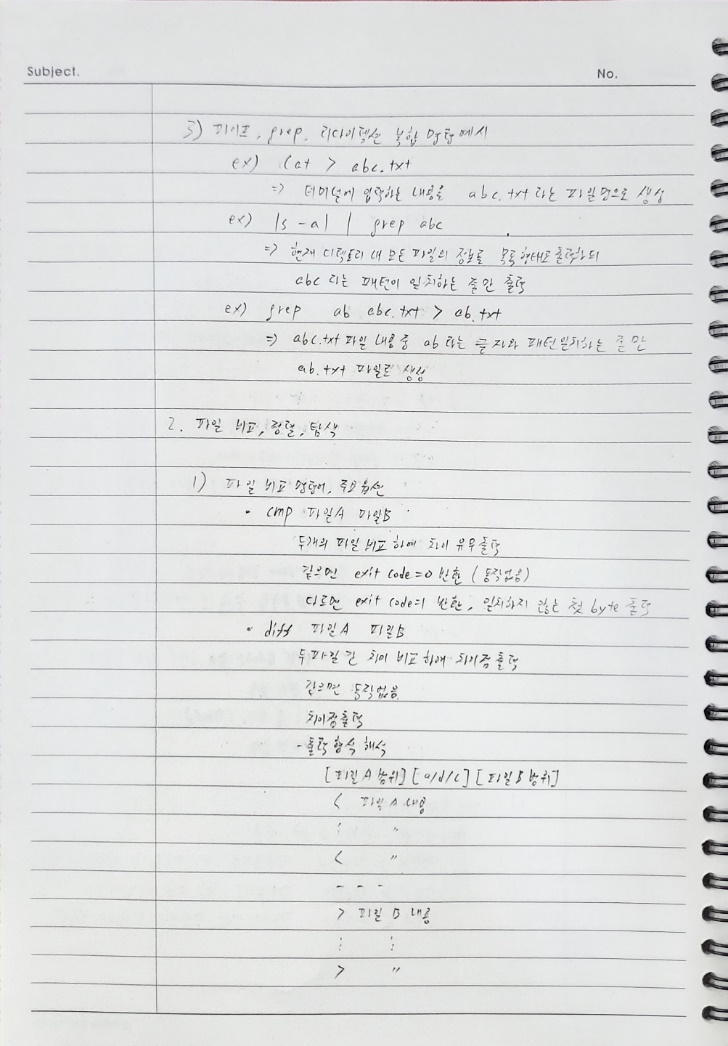 Subject.
No.
3) 파이프, grep, 리다이렉션 복합 명령 예시
ex) Cat > abc.txt
=> 터미널에 입력하는 내용을 abc.txt 라는 파일명으로 생성
ex) ls -al | grep abc
=> 현재 디렉토리 내 모든 파일의 정보를 목록형태로 출력하되
abc 라는 패턴이 일치하는 줄만 출력
ex) grep ab abc.txt > ab.txt
=> abc.txt 파일 내용 중 ab 라는 글자와 패턴일치하는 줄만
ab.txt 파일로 생성
2. 파일 비교, 정렬, 탐색
1) 파일 비교 명령어, 주요옵션
· cmp 파일A 파일B
두개의 파일 비교하여 차이 유무출력
같으면 exit code=0 반환 (동작없음)
다르면 exit code=1 반환, 일치하지 않는 첫 byte 출력
· diff 파일A 파일B
두파일 간 차이 비교하여 차이점출력
같으면 동작없음
차이점출력
- 출력 형식 해석
[파일A 범위] [a/d/c] [파일B 범위]
< 파일 A 내용
: "
< "
- - -
> 파일 B 내용
: :
> "